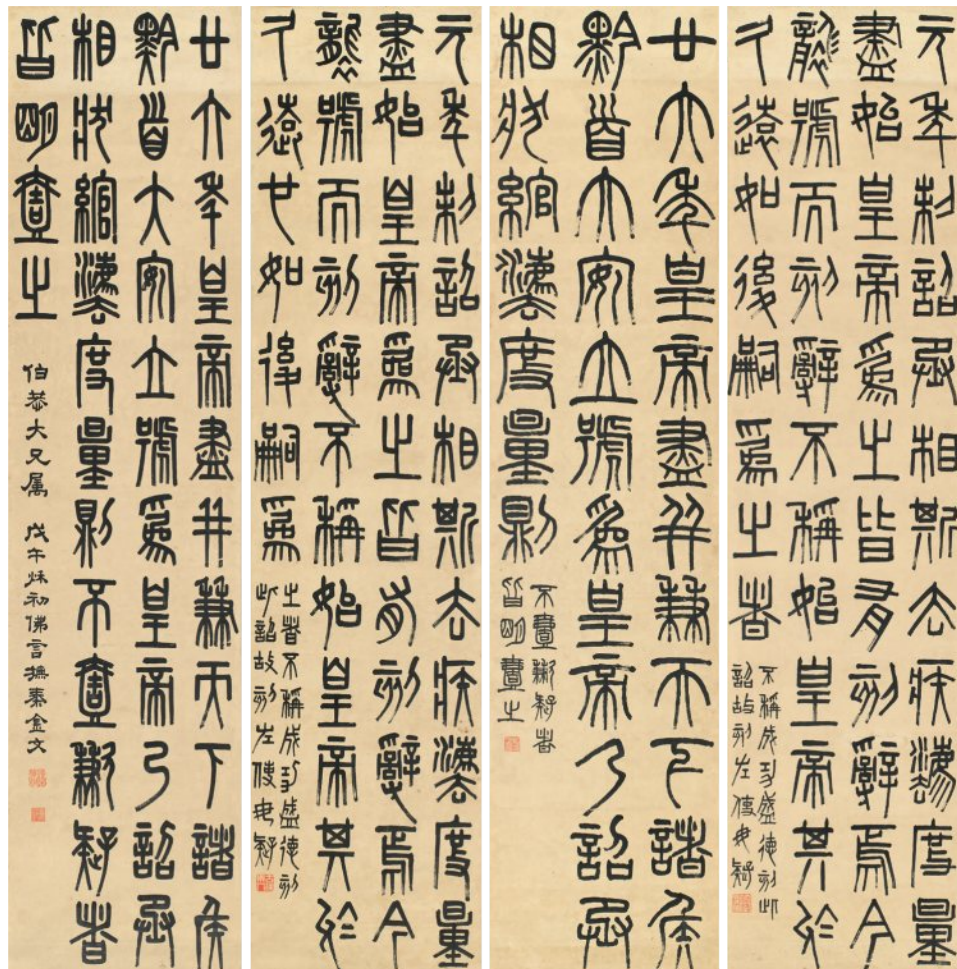 元年制詔丞相斯去疾灋度量
盡始皇帝爲之皆有刻辭焉今
襲號而刻辭不稱始皇帝其於
久遠如後嗣爲之者
不稱成功盛德刻此
詔故刻左使毋疑
廿六年皇帝盡并兼天下諸矦
黔首大安立號爲皇帝乃詔丞
相狀綰灋度量則
不壹歉疑者
皆明壹之
元年制詔丞相斯去疾灋度量
盡始皇帝爲之皆有刻辭焉今
襲號而刻辭不稱始皇帝其於
久遠也如後嗣爲
之者不稱成功盛德刻
此詔故刻左使毋疑
廿六年皇帝盡并兼天下諸矦
黔首大安立號爲皇帝乃詔丞
相狀綰灋度量則不壹歉疑者
皆明壹之
伯恭大兄属 戊午秌初佛言撫秦金文